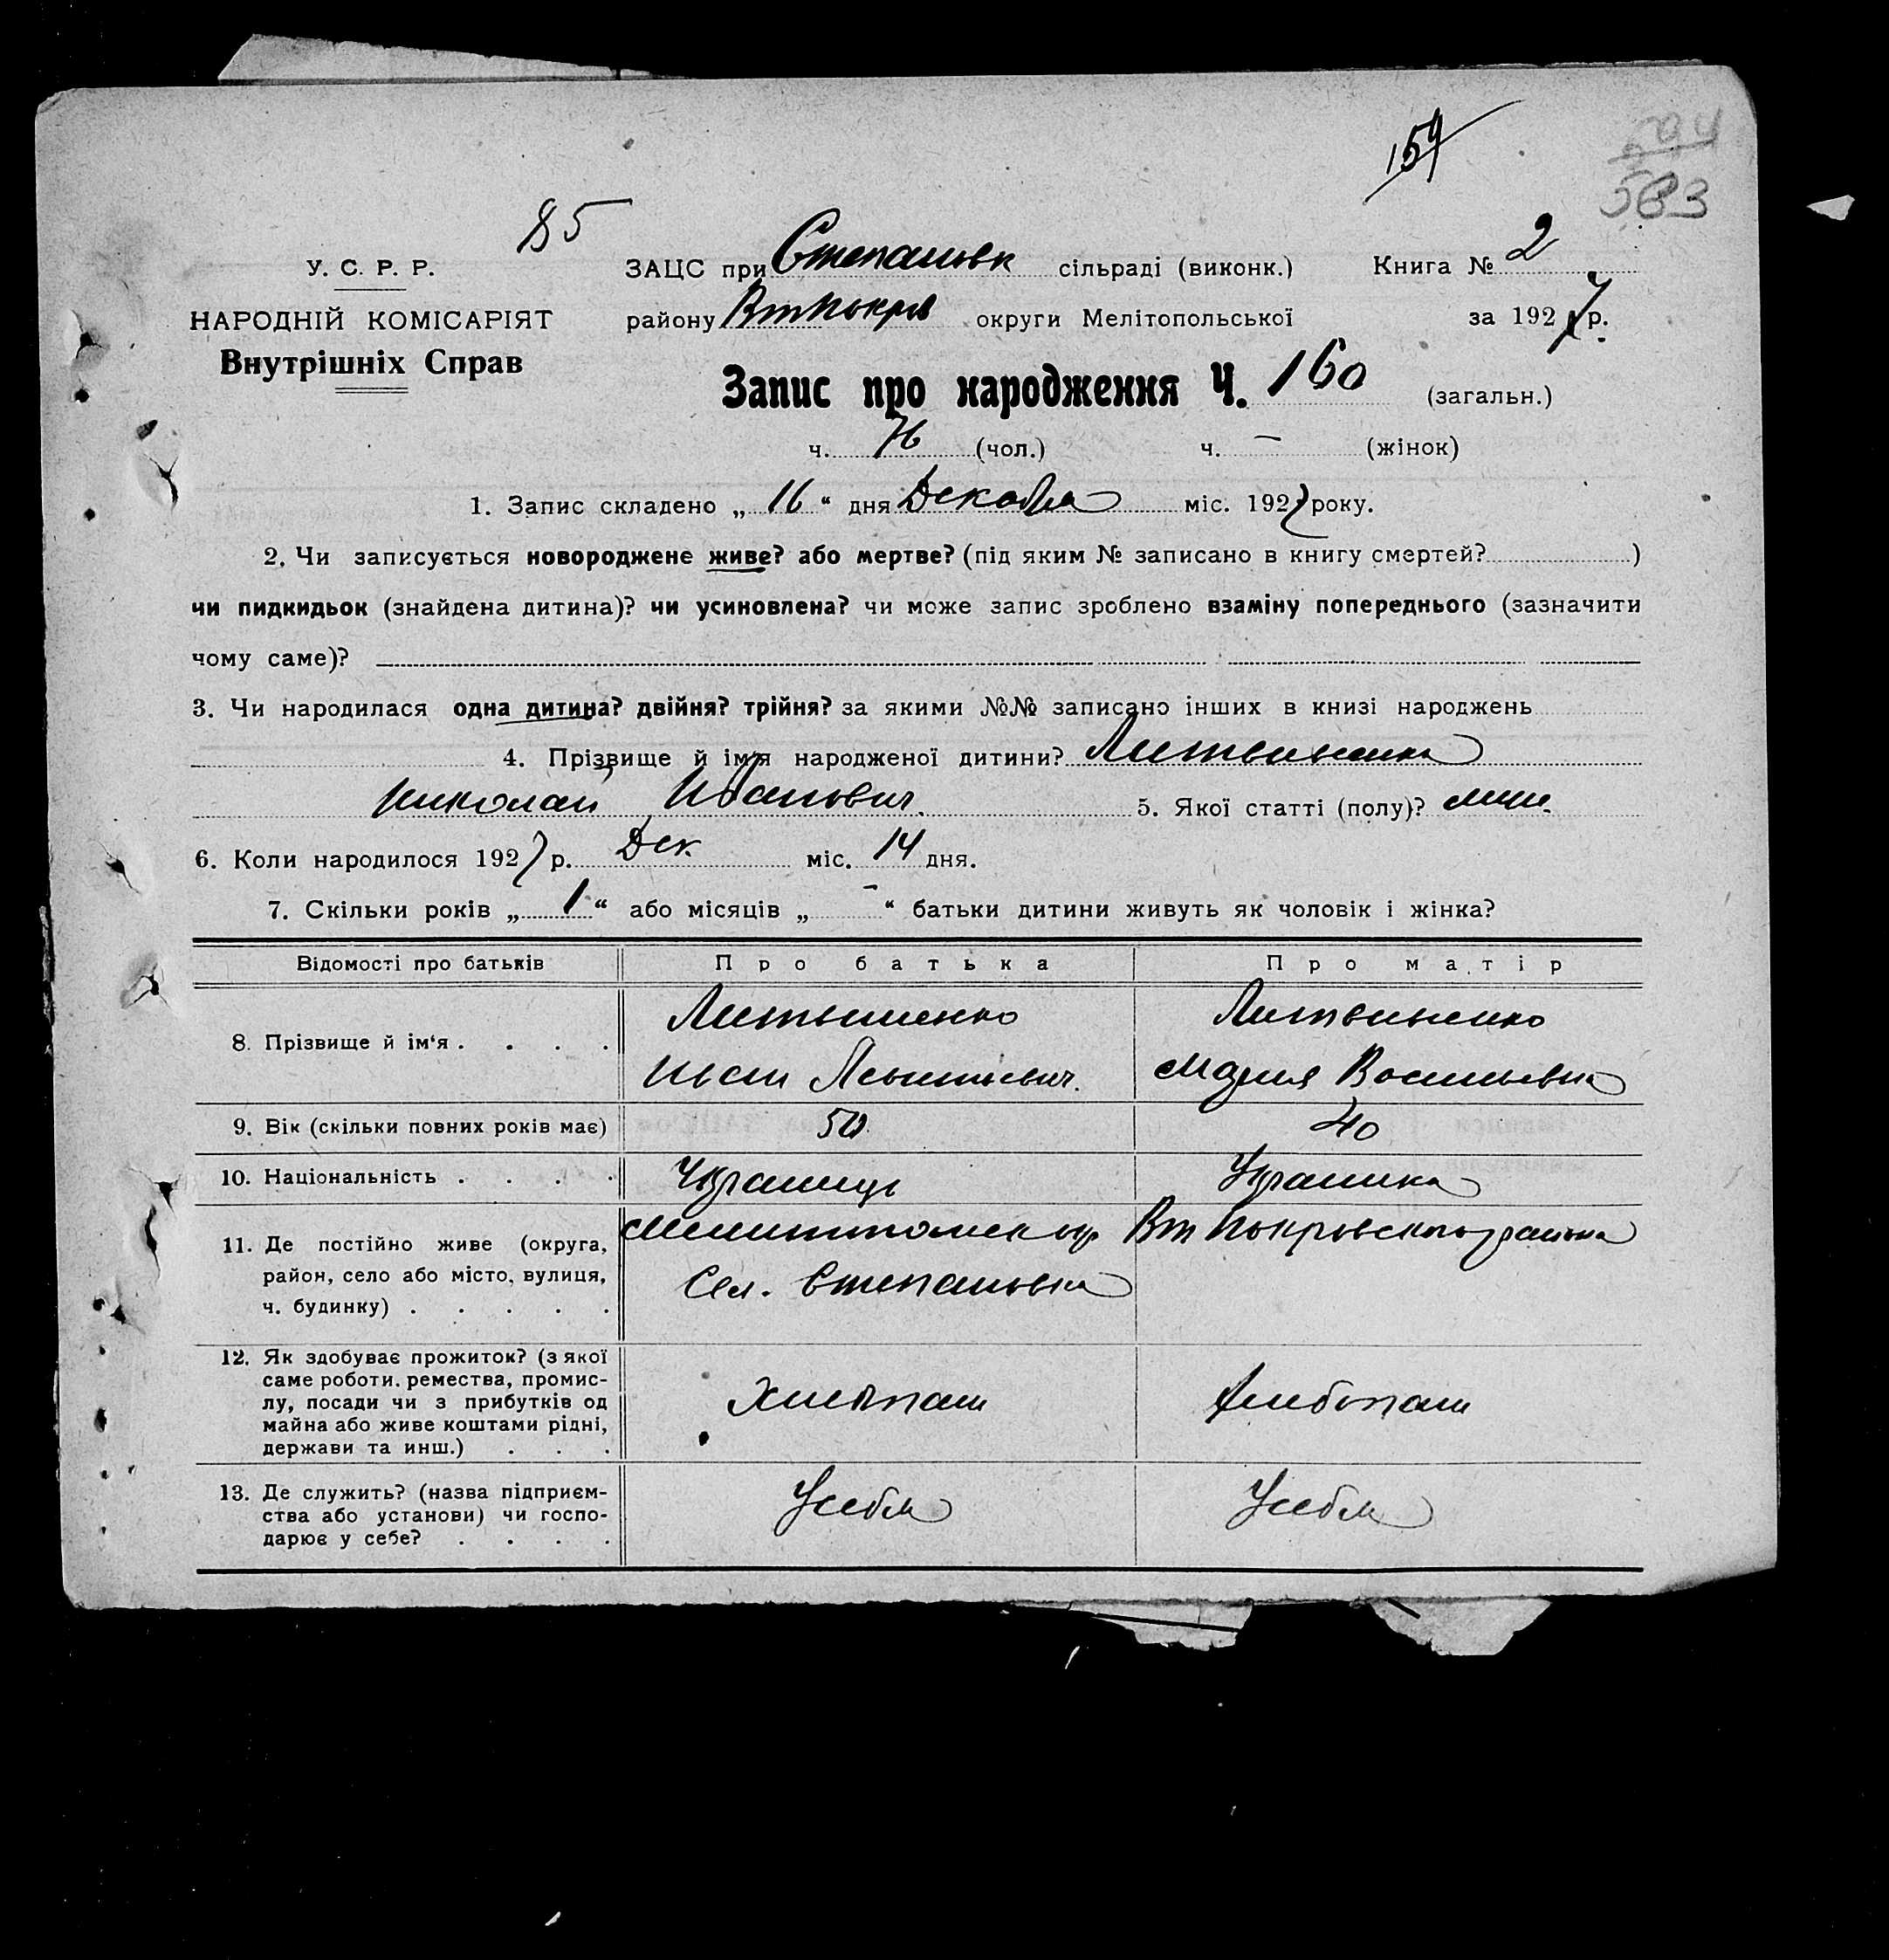 159
583
85
У. С. Р. Р.
НАРОДНІЙ КОМІСАРІЯТ
Внутрішніх Справ
ЗАЦС при Степановк сільраді (виконк.) Книга № 2
району Вт Покров округи Мелітопольської за 1927 р.
Запис про народження Ч. 160 (загальн.)
ч. 76 (чол.) ч. — (жінок)
1. Запис складено „ 16 “ дня Декабря міс. 1927 року.
2. Чи записується новороджене живе? або мертве? (під яким № записано в книгу смертей? )
чи пидкидьок (знайдена дитина)? чи усиновлена? чи може запис зроблено взаміну попереднього (зазначити
чому саме)?
3. Чи народилася одна дитина? двійня? трійня? за якими №№ записано інших в книзі народжень
4. Прізвище й ім'я народженої дитини? Литвиненко
Николай Иванович. 5. Якої статті (полу)?
6. Коли народилося 1927 р. Дек. міс. 14 дня.
7. Скільки років „ 1 “ або місяців „ – “ батьки дитини живуть як чоловік і жінка?
Відомості про батьків Про батька Про матір
8. Прізвище й ім'я . . . . Литвиненко Литвиненко
Иван Мария Васильевна
9. Вік (скільки повних років має) 50 40
10. Національність . . . . Украинць Украинка
11. Де постійно живе (округа, район, село або місто, вулиця, ч. будинку) . . . . . Мелитопольск окр Вт Покровского района
Сел. Степановка
12. Як здобуває прожиток? (з якої
саме роботи, ремества, промис-
лу, посади чи з прибутків од
майна або живе коштами рідні,
держави та инш.) . . . Хлебопаш Хлебопаш
13. Де служить? (назва підприєм-
ства або установи) чи госпо-
дарює у себе? . . . . У себя У себя